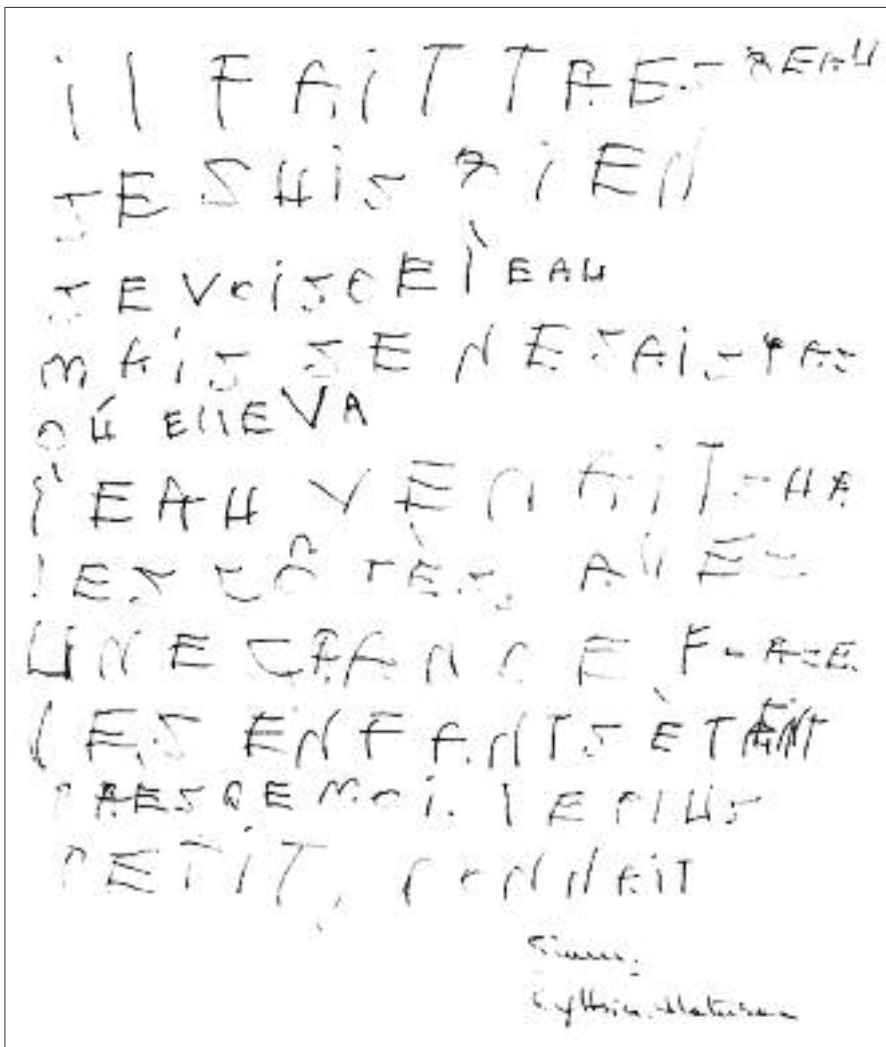 il FAiT TRES BEAU
JE SUiS BiEN
JE VOiS DE l'EAU
MAiS JE NE SAiS PAS
OÙ EllE VA
l'EAU VENAiT SUR
lES CÔTÈS, AVEC
UNE GRANDE FORCE.
lES ENFANTS ÈTAiENT
PRES DE MOi. lE PlUS
PETiT, DONNAiT